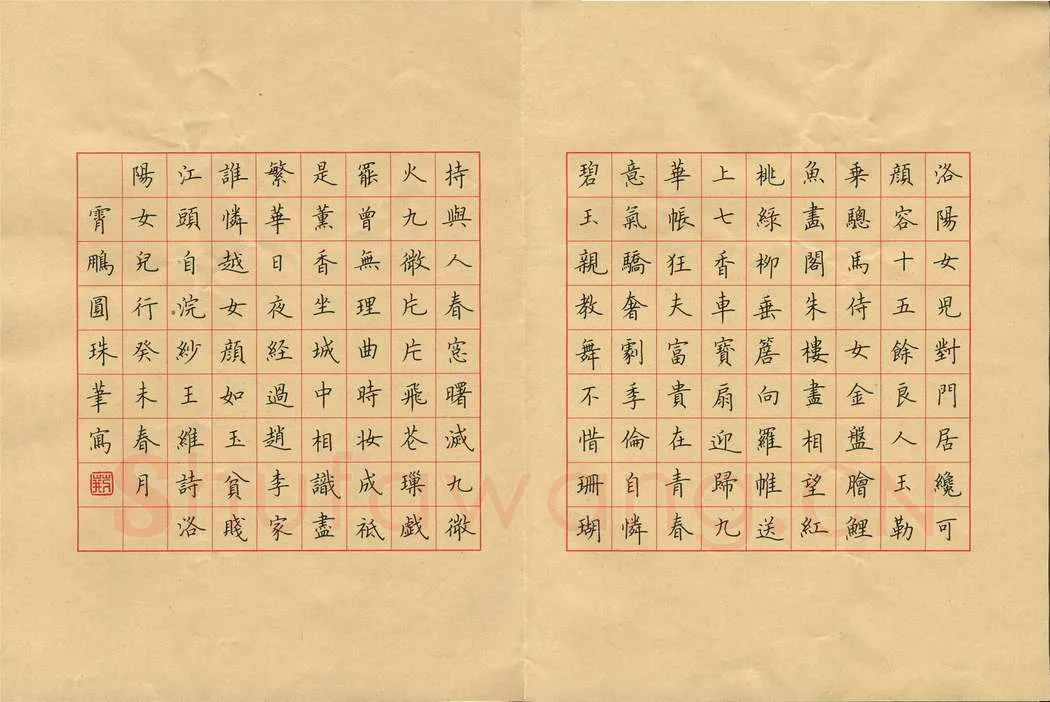 洛陽女児對門居纔可
顔容十五餘良人玉勒
乗驄馬侍女金盤膾鯉
魚畫閣朱樓盡相望紅
桃緑柳垂簷向羅帷送
上七香車寶扇迎歸九
華帳狂夫富貴在青春
意氣驕奢劇季倫自憐
碧玉親教舞不惜珊瑚
持與人春窓曙滅九微
火九微片片飛花璅戯
罷曾無理曲時妝成祗
是薫香坐城中相識盡
繁華日夜経過趙李家
誰憐越女顔如玉貧賤
江頭自浣紗王維詩洛
陽女兒行癸未春月
霄鵬圓珠筆寫
Shufawang.CN